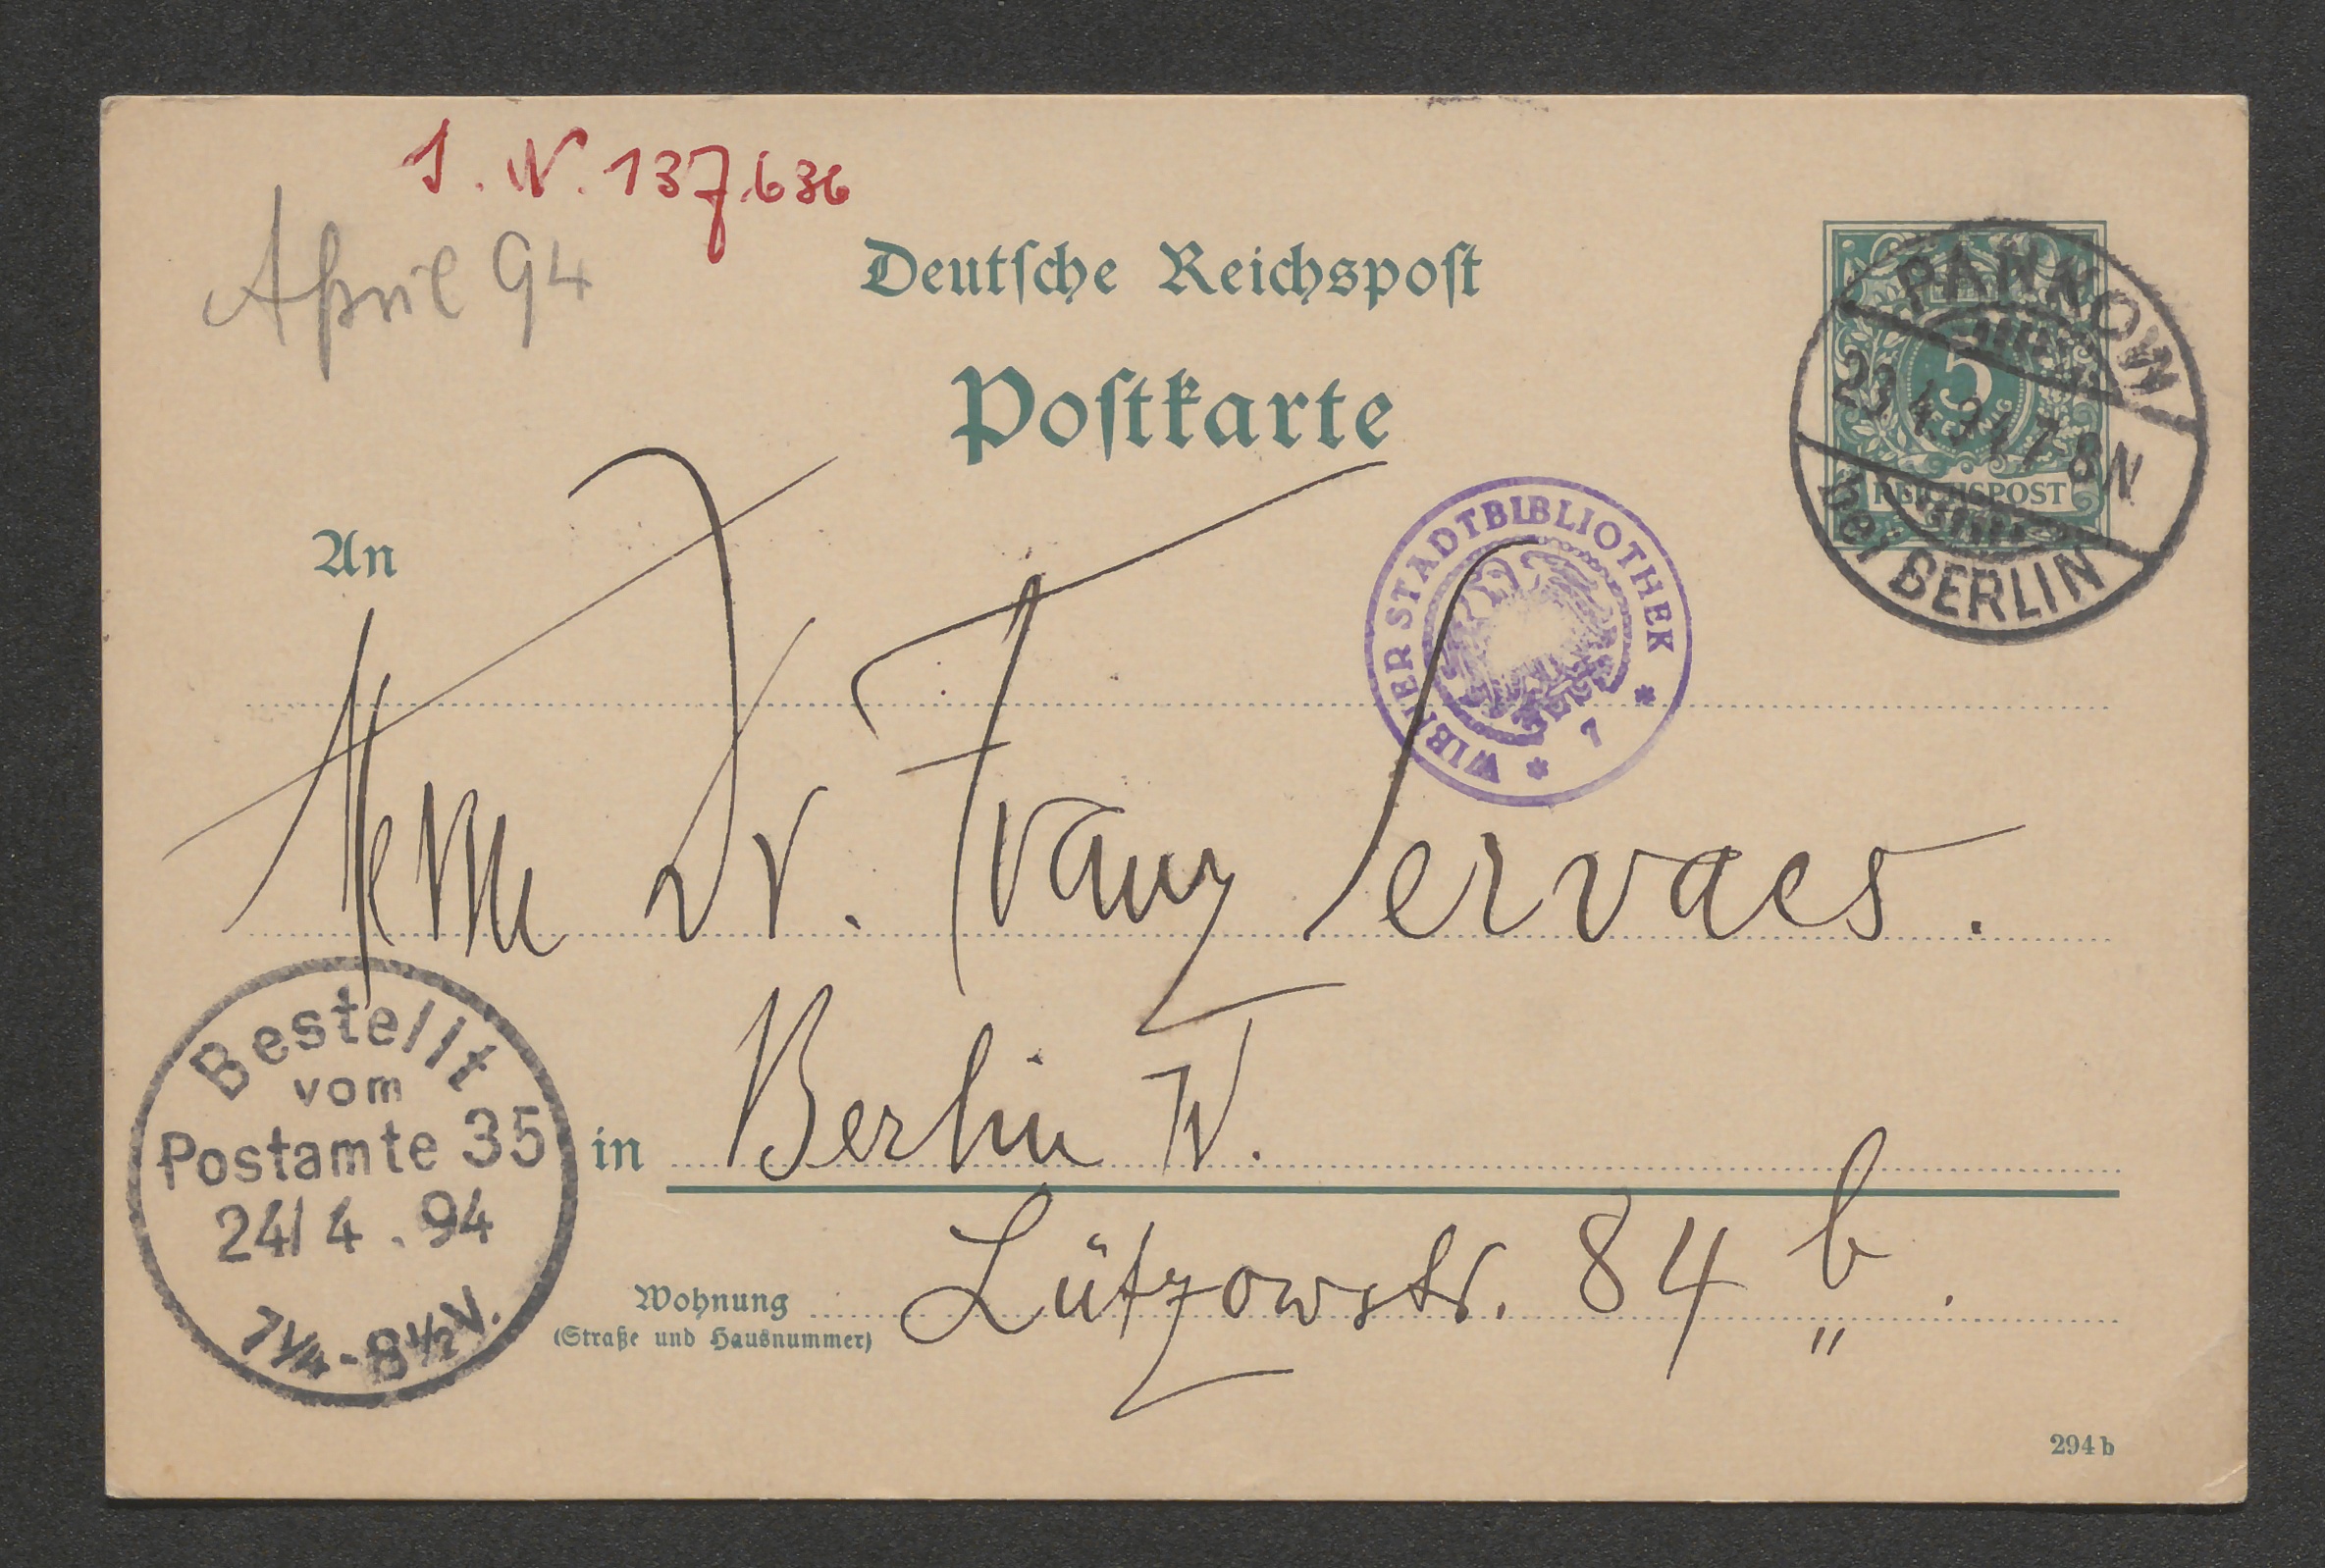 J. N. 137.636
April 94
Deutsche Reichspost
Postkarte
5
PFENNIG
REICHSPOST
PANKOW
23.4.94.7-8N
bei BERLIN
An
WIENER STADTBIBLIOTHEK
* 7 *
Herrn Dr. Franz Servaes.
Bestellt
vom
Postamte 35
24/4.94
7¼-8½V.
in Berlin W.
Wohnung Lützowstr. 84 b.
(Straße und Hausnummer)
294b